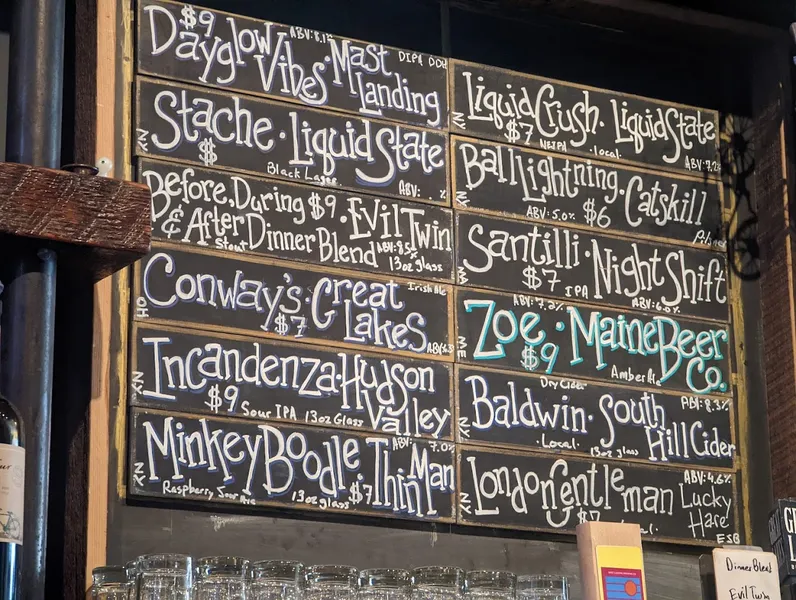 $9 ABV: 8.1% DIPA DDH
Dayglow Vibes · Mast Landing
NY
Stache · Liquid State
$
Black Lager
ABV: %
NY
Before, During $9 · Evil Twin
& After Dinner Blend ABV: 8.5%
Stout 13oz glass
OH
Conway's · Great Lakes
Irish Ale
$7
NY
Incandenza · Hudson Valley
$9 Sour IPA 13oz Glass
NY
Minkey Boodle · Thin Man
ABV: 7.0%
Raspberry Sour 13oz glass $7
NY
Liquid Crush · Liquid State
$7 NEIPA local.
ABV: 7.2%
NY
Ball Lightning · Catskill
ABV: 5.0% $6
MA
Santilli · Night Shift
$7 IPA ABV: 6.0%
ME
ABV: 7.2%
Zoe · Maine Beer Co.
$9 Amber Ale
NY
Dry Cider
ABV: 8.3%
Baldwin · South Hill Cider
Local. 13oz glass
NY
London Gentleman Lucky Hare
ABV: 4.6%
$7
ESB
Dinner Blend
Evil Twin